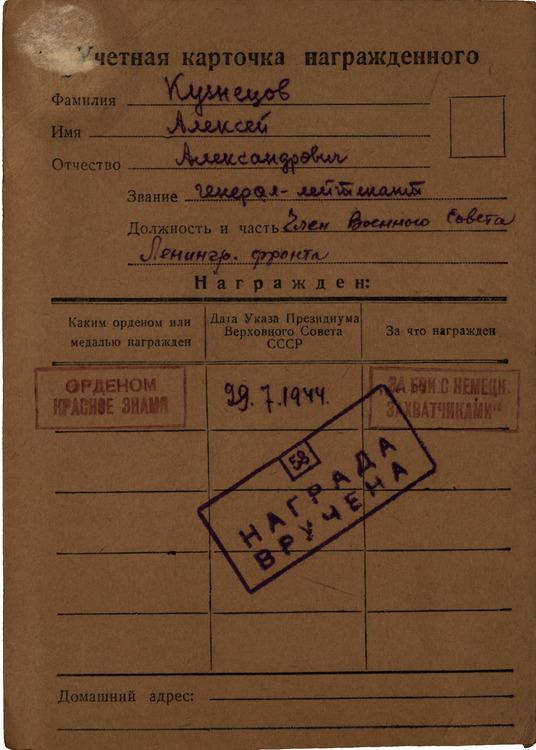 Учетная карточка награжденного
Фамилия Кузнецов
Имя Алексей
Отчество Александрович
Звание генерал-лейтенант
Должность и часть Член Военного Совета
Ленингр. фронта
Награжден:
Каким орденом или медалью награжден
Дата Указа Президиума Верховного Совета СССР
За что награжден
ОРДЕНОМ
КРАСНОЕ ЗНАМЯ
29.7.1944.
ЗА БОИ С НЕМЕЦК.
ЗАХВАТЧИКАМИ"
58
НАГРАДА
ВРУЧЕНА
Домашний адрес: